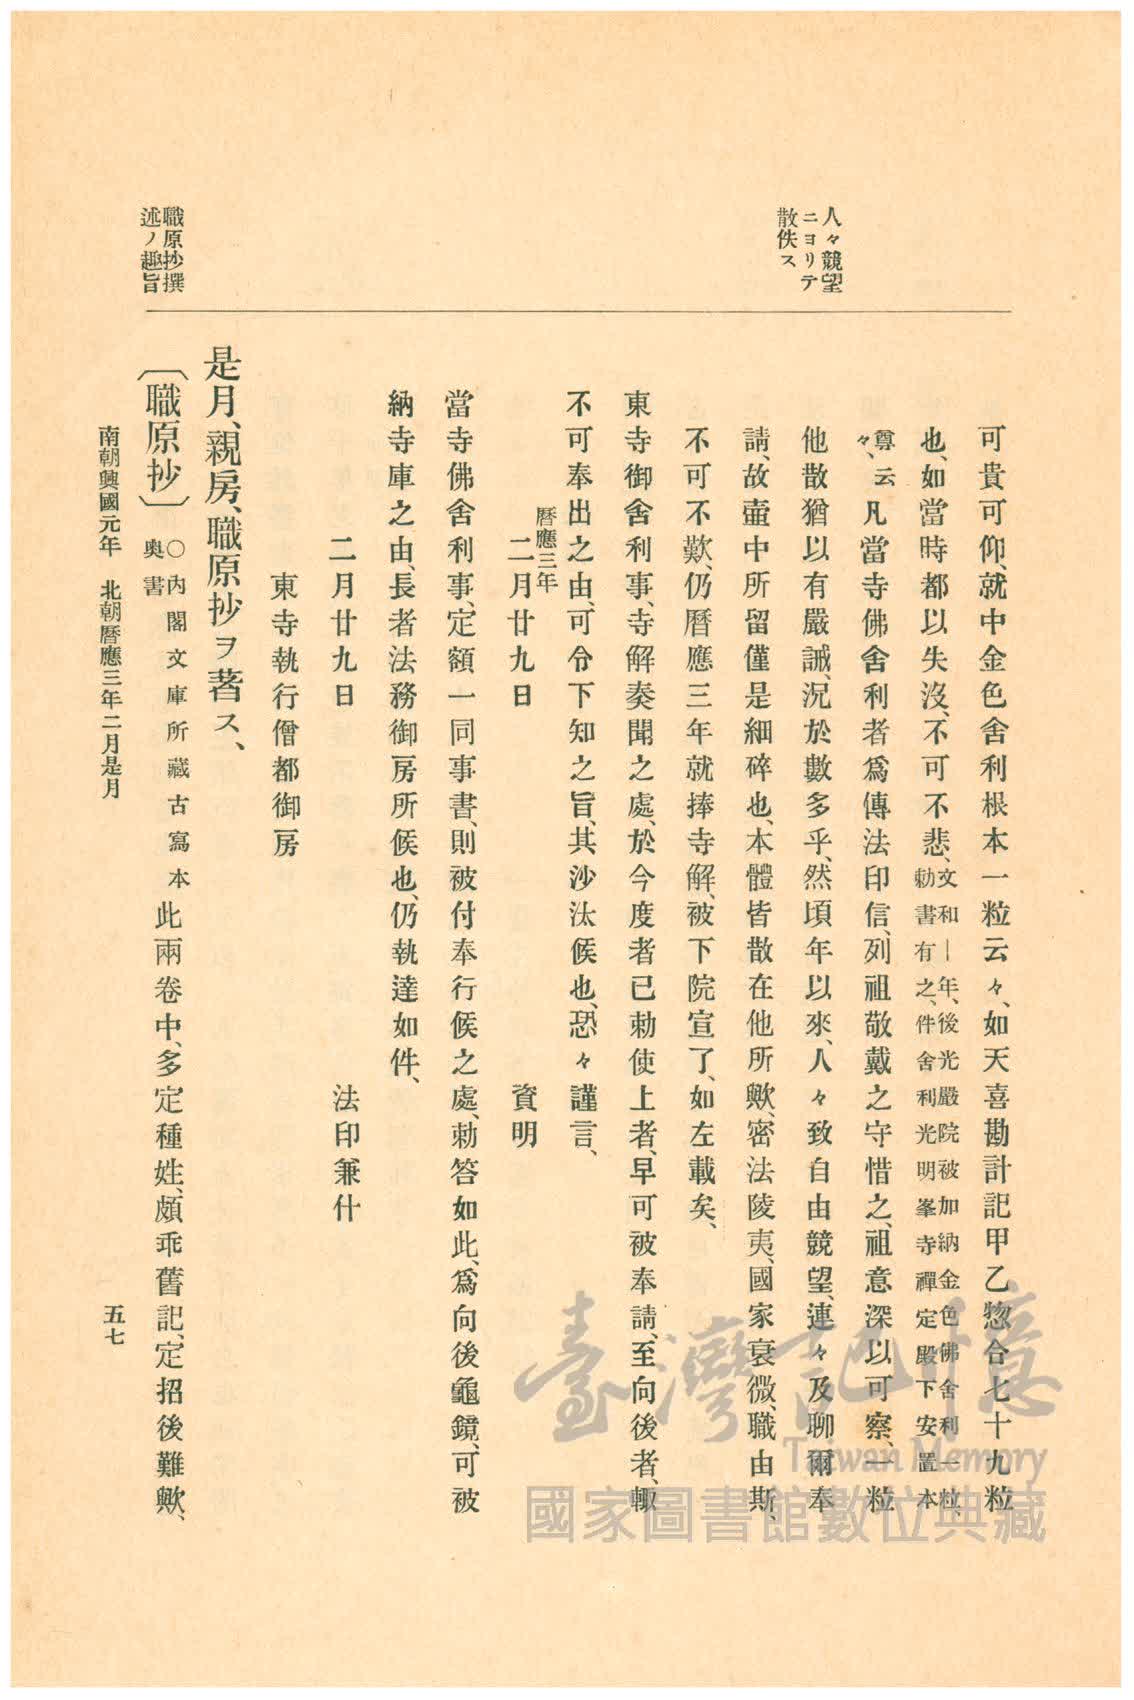 人々競望
ニヨリテ
散佚ス
職原抄撰
述ノ趣旨
可貴可仰、就中金色舍利根本一粒云々、如天喜勘計記甲乙惣合七十九粒
也、如當時都以失沒、不可不悲、文和―年、後光嚴院被加納金色佛舍利一粒、
勅書有之、件舍利光明峯寺禪定殿下安置本
尊云
々、凡當寺佛舍利者爲傳法印信、列祖敬戴之守惜之、祖意深以可察、一粒
他散猶以有嚴誡、況於數多乎、然頃年以來、人々致自由競望、連々及聊爾奉
請、故壷中所留僅是細碎也、本體皆散在他所歟、密法陵夷、國家衰微、職由斯、
不可不歎、仍曆應三年就捧寺解、被下院宣了、如左載矣、
東寺御舍利事、寺解奏聞之處、於今度者已勅使上者、早可被奉請、至向後者、輙
不可奉出之由、可令下知之旨、其沙汰候也、恐々謹言、
曆應三年
二月廿九日　資明
當寺佛舍利事、定額一同事書、則被付奉行候之處、勅答如此、爲向後龜鏡、可被
納寺庫之由、長者法務御房所候也、仍執達如件、
二月廿九日　法印兼什
東寺執行僧都御房
是月、親房、職原抄ヲ著ス、
〔職原抄〕　〇內閣文庫所藏古寫本
奧書　此兩卷中、多定種姓、頗乖舊記、定招後難歟、
南朝興國元年　北朝曆應三年二月是月　五七
臺灣記憶
Taiwan Memory
國家圖書館數位典藏